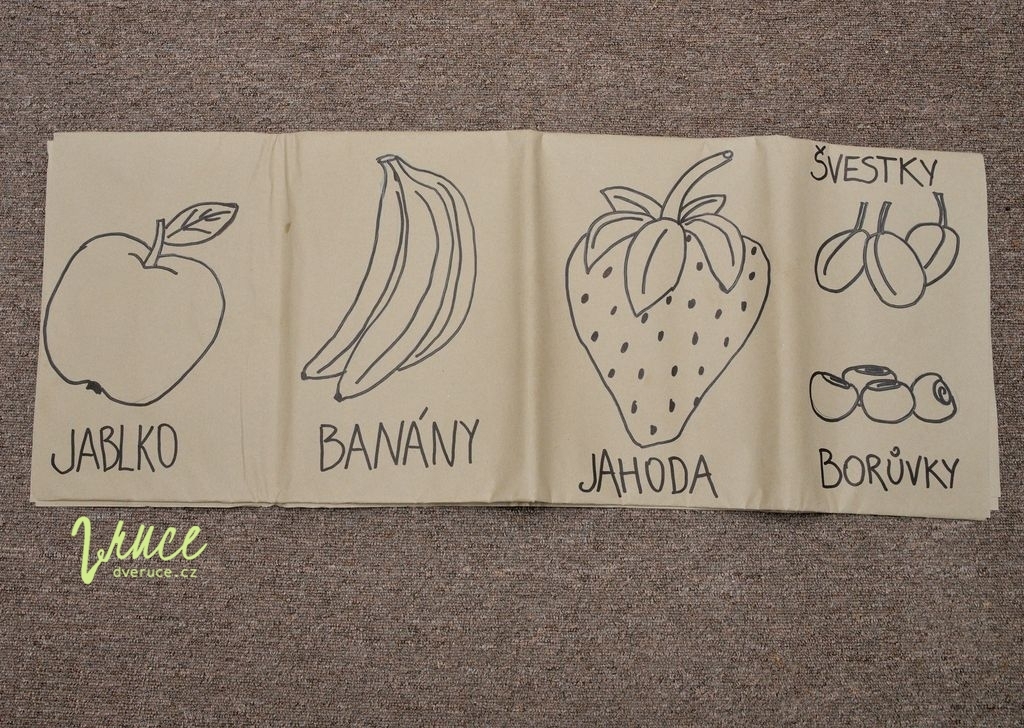 JABLKO
BANÁNY
JAHODA
ŠVESTKY
BORŮVKY
2vruce
dveruce.cz